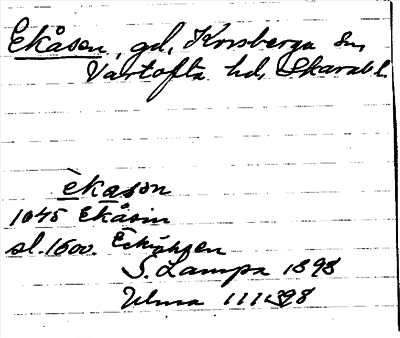 Ekåsen, gd, Korsberga sn,
Vartofta hd, Skarab. l.
èkåsən
1645 Ekåsin
sl. 1600.
S. Lampa 1898
Ulma 111:398